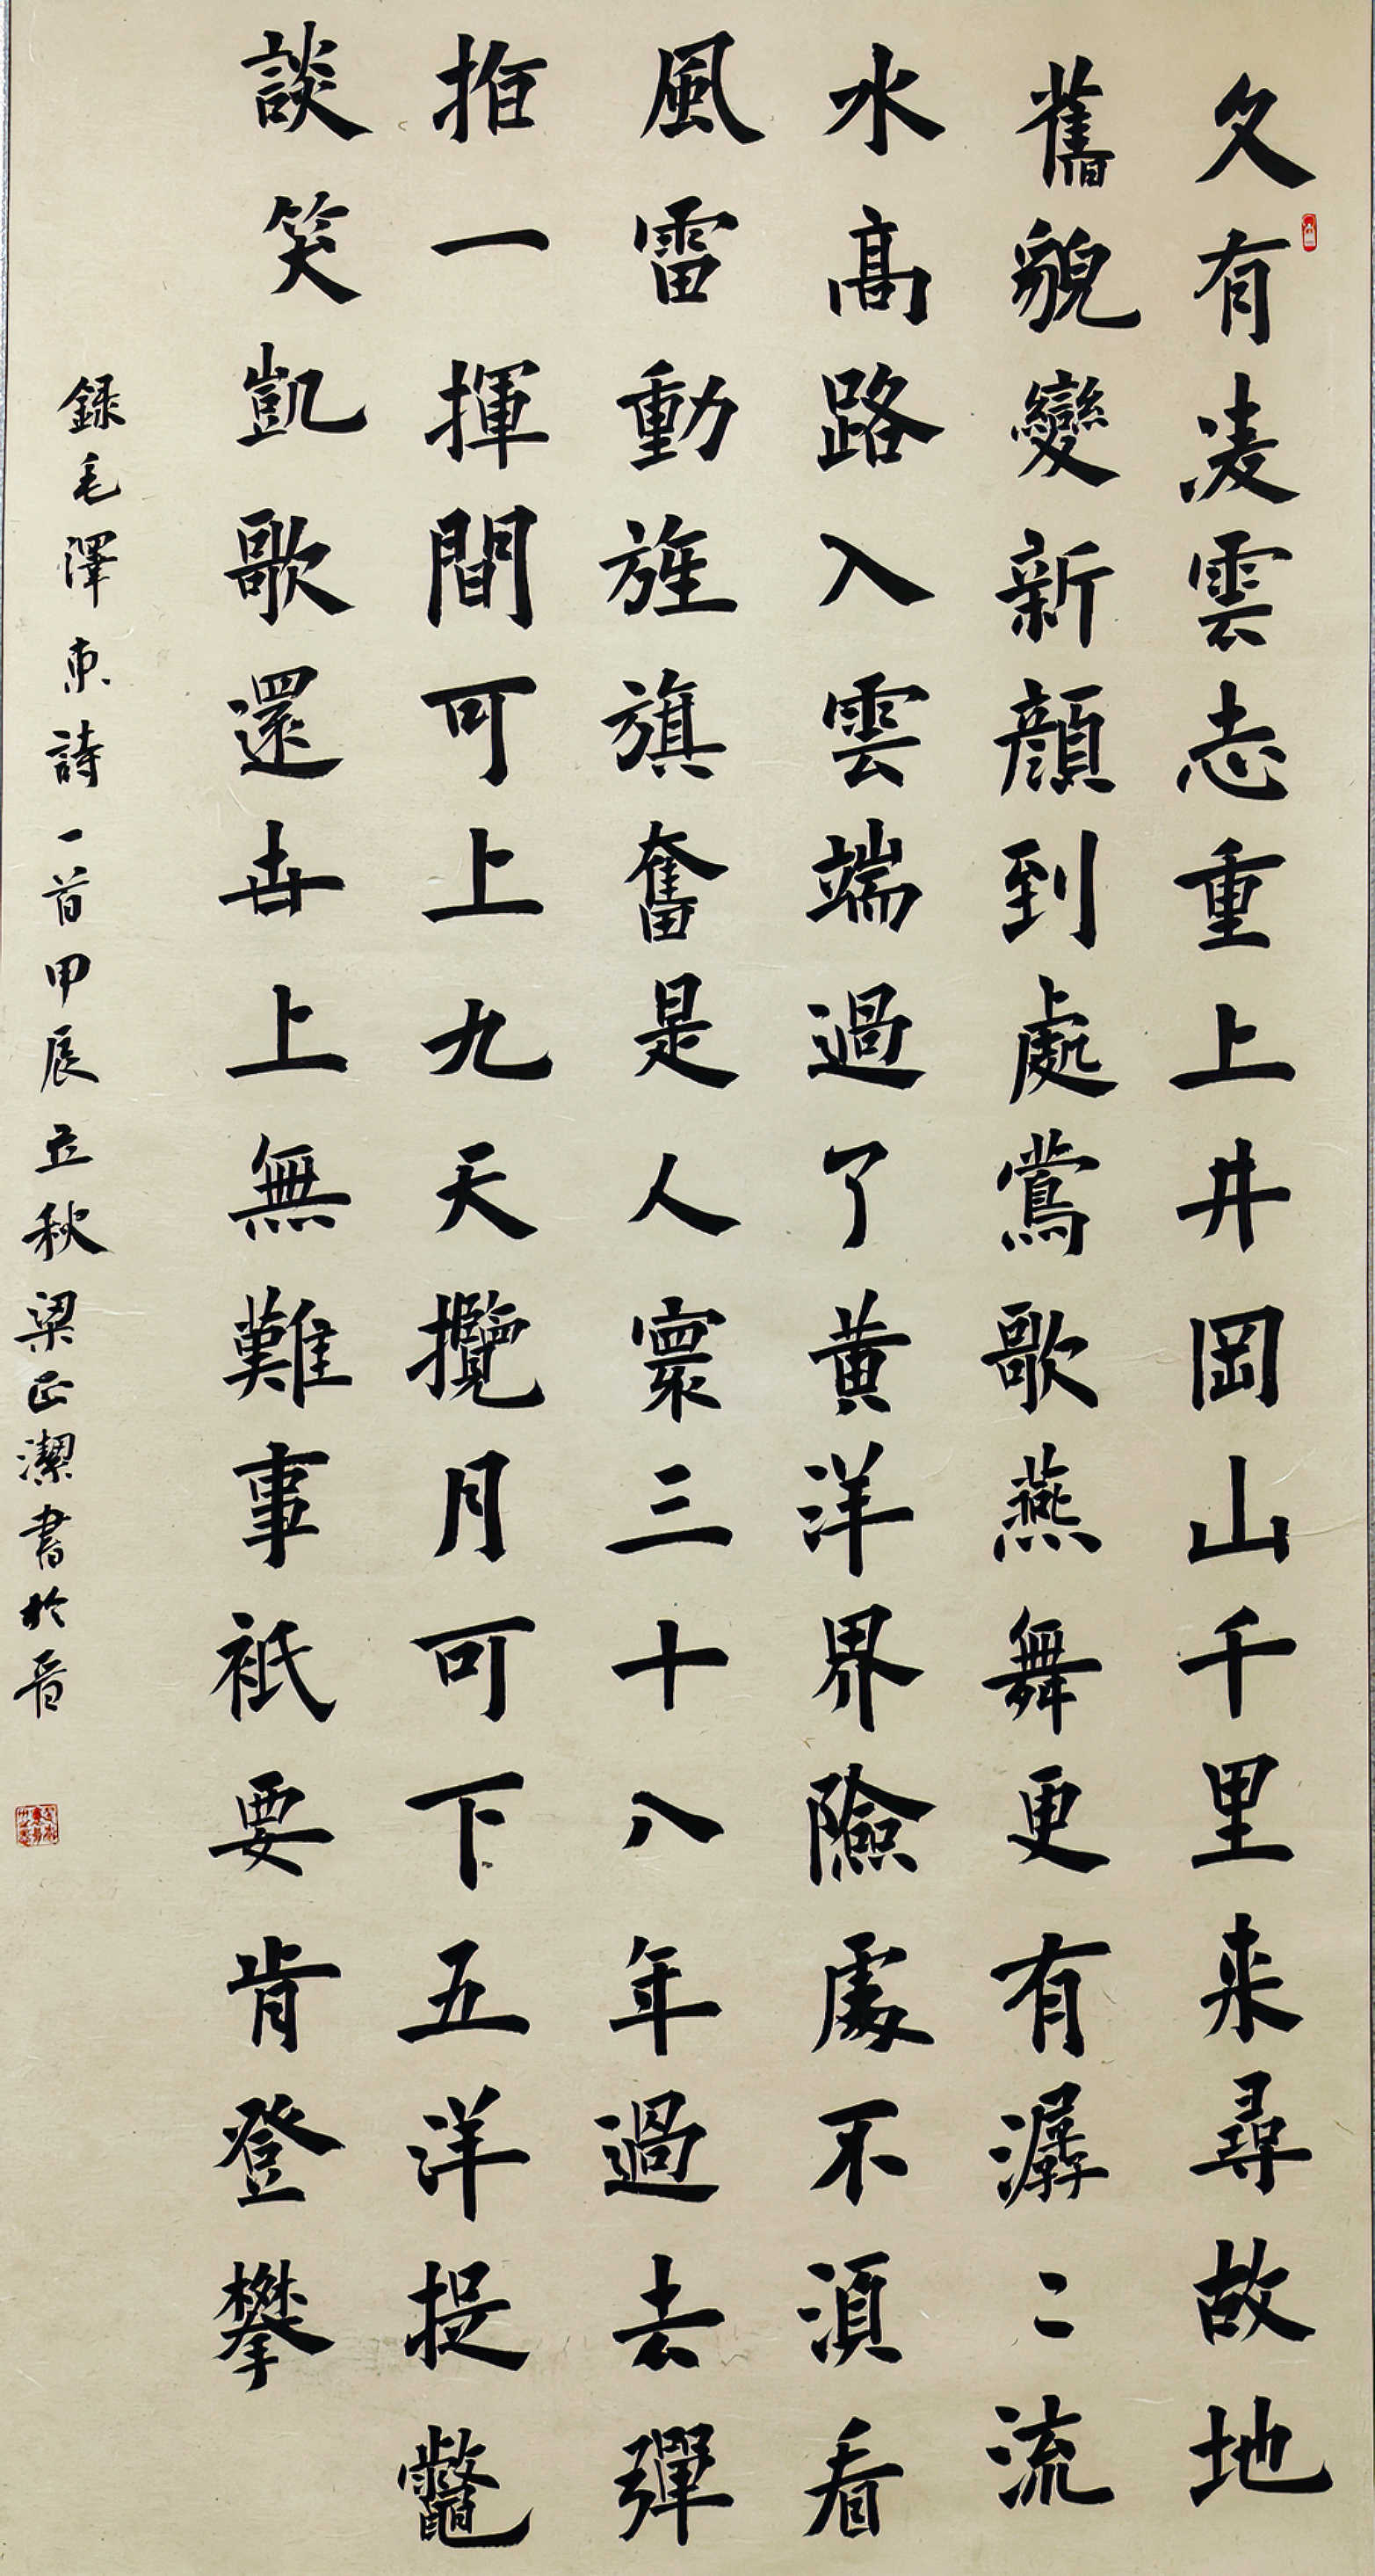 久有凌雲志重上井岡山千里来尋故地
舊貌變新顔到處鶯歌燕舞更有潺々流
水髙路入雲端過了黄洋界險處不須看
風雷動旌旗奮是人寰三十八年過去彈
指一揮間可上九天攬月可下五洋捉鼈
談笑凱歌還世上無難事祇要肯登攀
録毛澤東詩一首甲辰立秋梁正潔書於晋